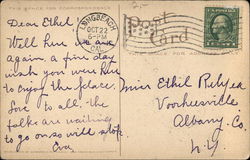 THIS SPACE FOR CORRESPONDENCE
Dear Ethel
Well here we are
again, a fine day
wish you were here
to enjoy the place.
Love to all. the
folks are waiting
to go on so will stop
Eva
LONG BEACH
OCT 22
6-PM
CAL.
Post Card
Miss Ethel
Voorheesville
Albany Co.
N.Y.